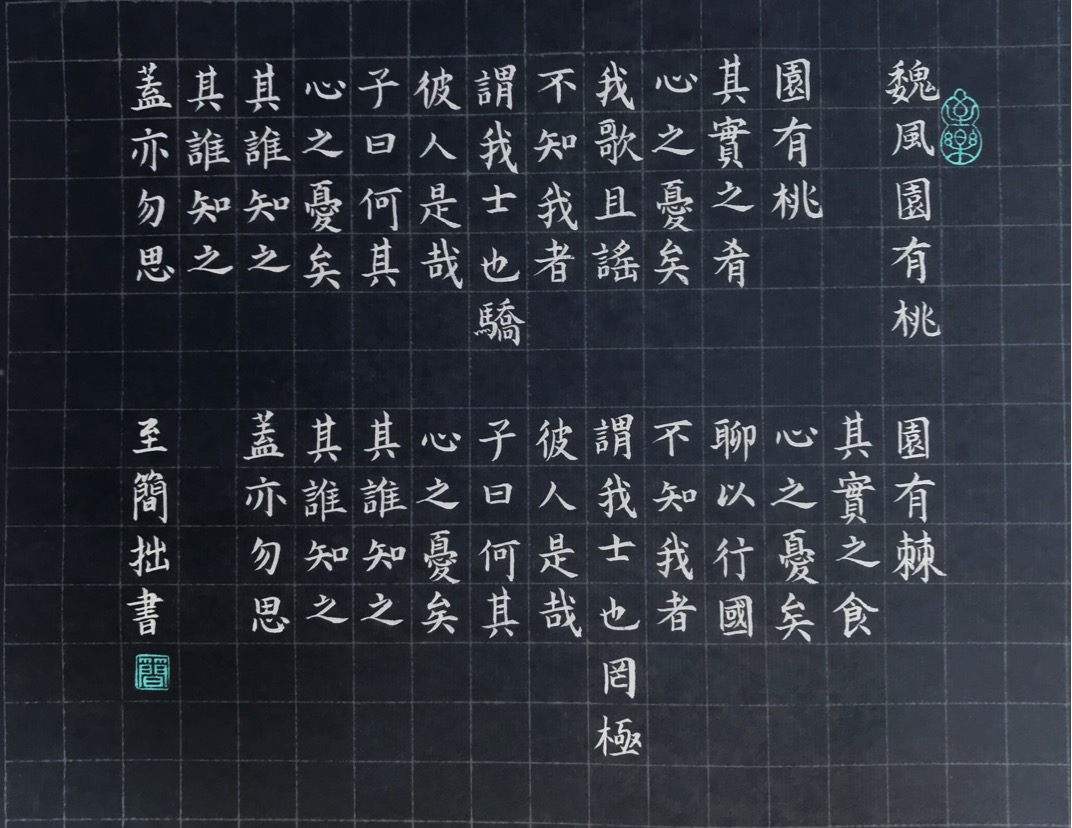 魏風園有桃
園有桃
其實之肴
心之憂矣
我歌且謠
不知我者
謂我士也驕
彼人是哉
子曰何其
心之憂矣
其誰知之
其誰知之
蓋亦勿思
園有棘
其實之食
心之憂矣
聊以行國
不知我者
謂我士也罔極
彼人是哉
子曰何其
心之憂矣
其誰知之
其誰知之
蓋亦勿思
至簡拙書
簡